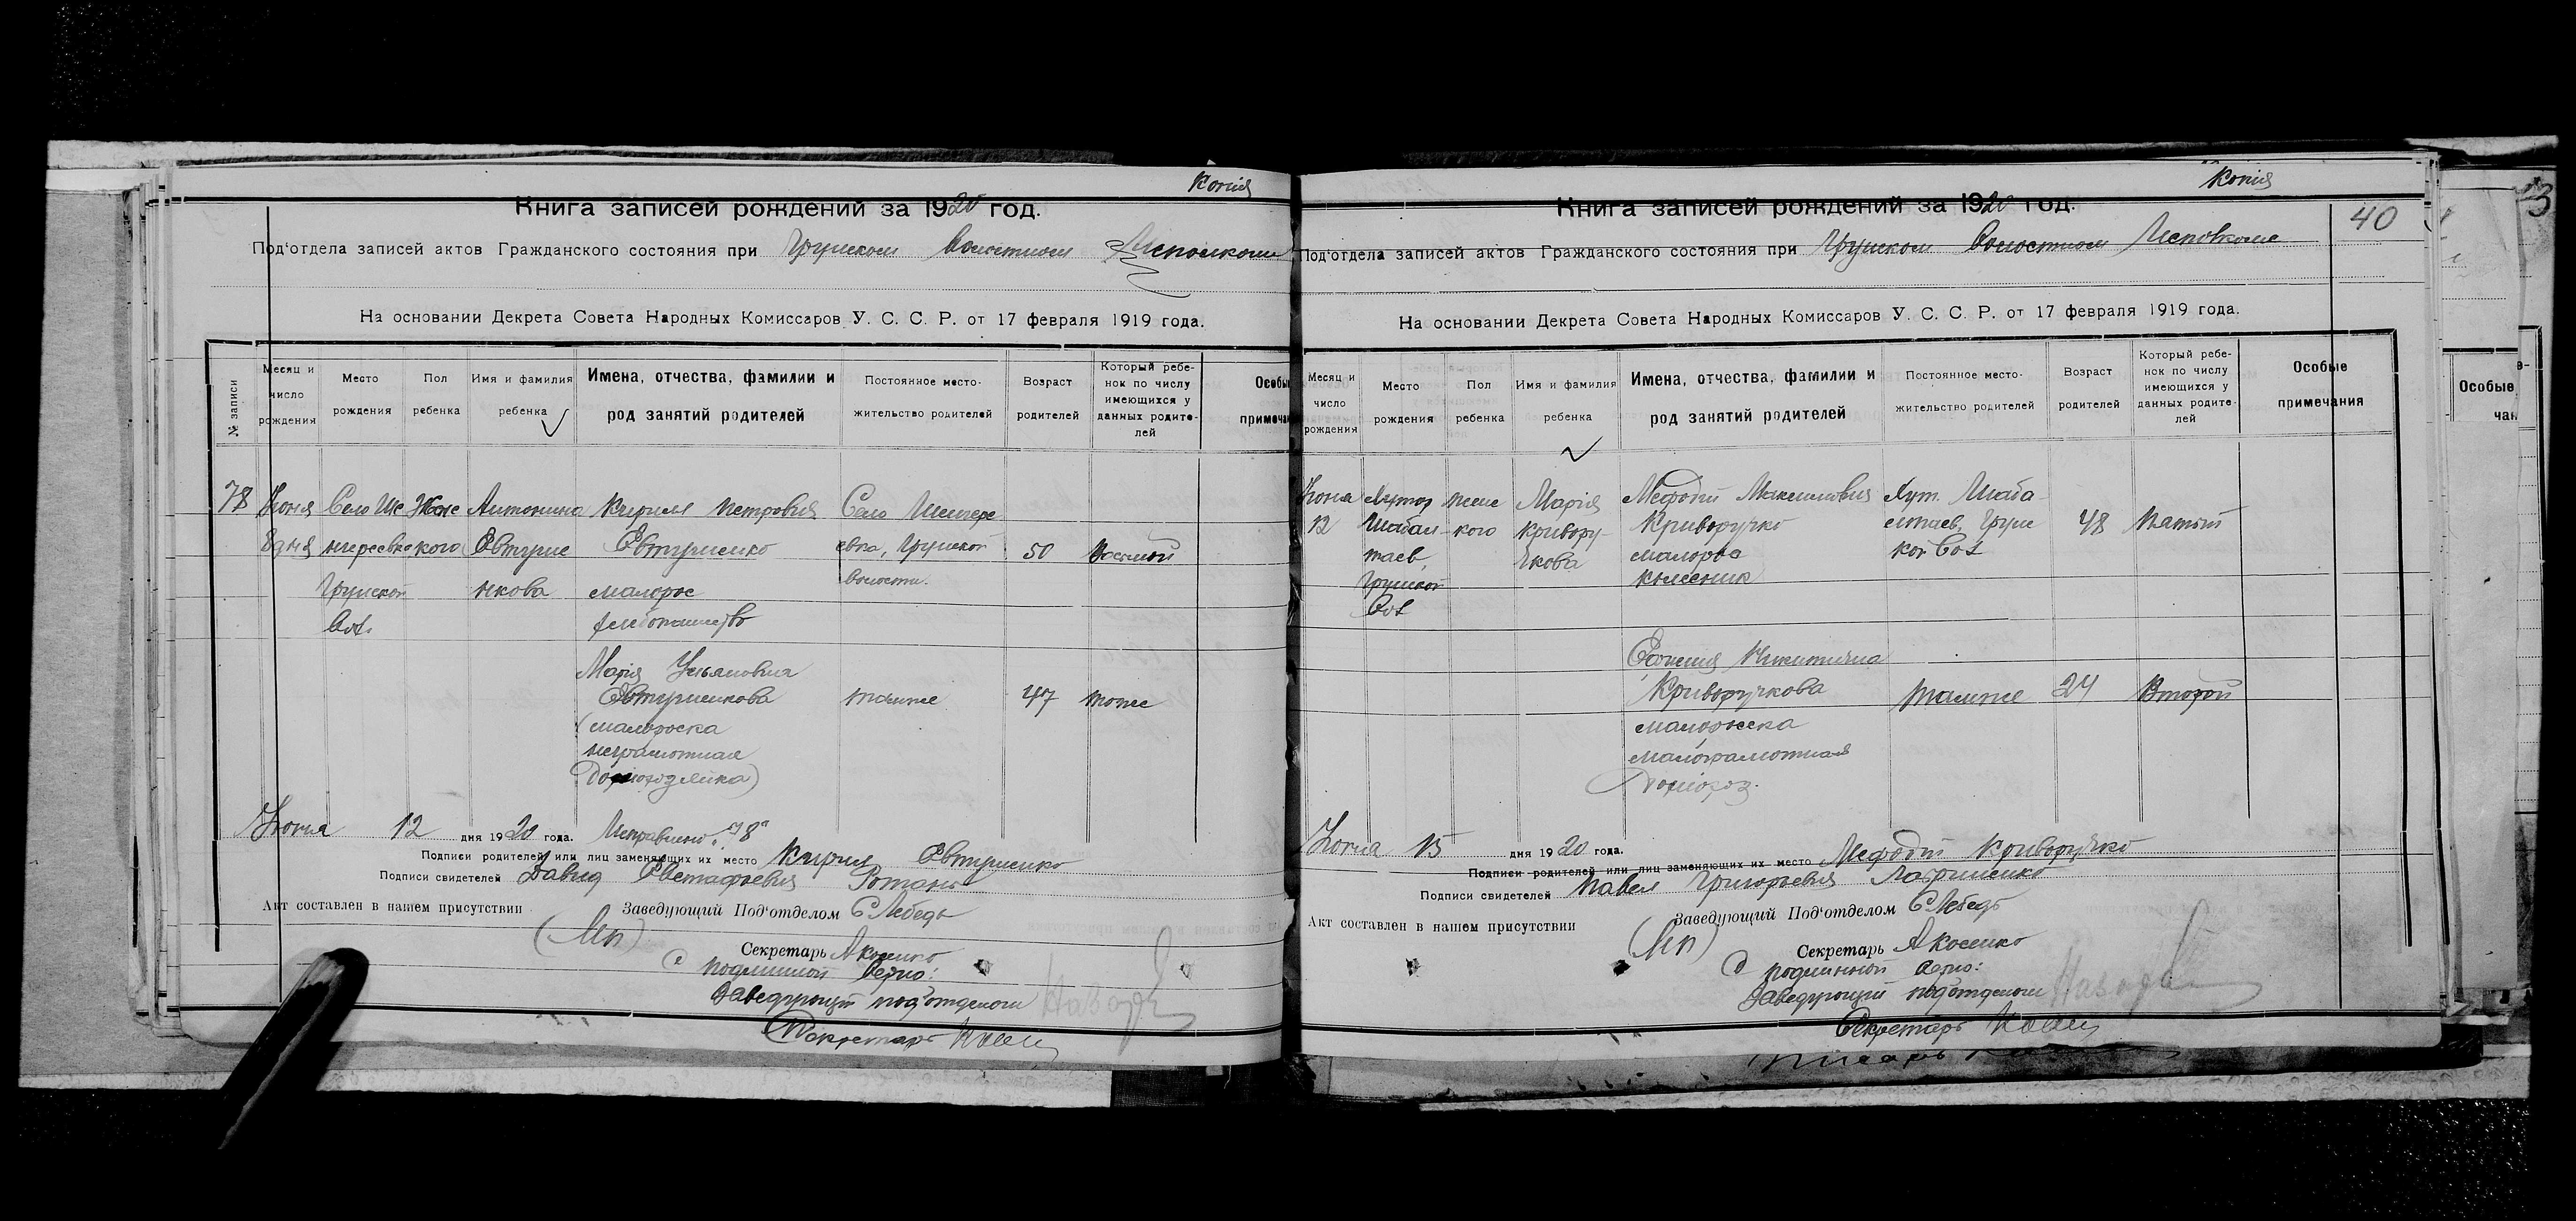 Копия
Книга записей рождений за 1920 год.
Под‘отдела записей актов Гражданского состояния при Грунском Волостном Исполкоме
На основании Декрета Совета Народных Комиссаров У. С. С. Р. от 17 февраля 1919 года.
№ записи
Месяц и число рождения
Место рождения
Пол ребенка
Имя и фамилия ребенка
Имена, отчества, фамилии и род занятий родителей
Постоянное место-жительство родителей
Возраст родителей
Который ребе-
нок по числу
имеющихся у
данных родите-
лей
Особы
примеча
78 Июня Село Ше Женс Антонина Кирилл Петровия Село Шенгере
8 дня нгереевка кого Евтуше Евтушенко евка, Грунской 50 Восьмой
Грунской нкова малорос волости.
Вол. хлебопашество
Марія Ульяновна
Евтушенкова также 47 тоже
(малороска
неграмотная
Домохозяйка)
Июня 12 дня 1920 года. Исправлено „78“
Подписи родителей или лиц заменяющих их место Кирил Евтушенко
Подписи свидетелей Давид Евстафьевия Ротань
Акт составлен в нашем присутствии Заведующий Под‘отделом С Лебедь
(МП)
Секретарь А Косенко
С подлинной верно:
Заведующий под‘отделом
Секретарь
Копия
40
Книга записей рождений за 1920 год.
Под‘отдела записей актов Гражданского состояния при Грунском Волостном Исповкоме
На основании Декрета Совета Народных Комиссаров У. С. С. Р. от 17 февраля 1919 года.
Месяц и число рождения
Место рождения
Пол ребенка
Имя и фамилия ребенка
Имена, отчества, фамилии и род занятий родителей
Постоянное место-жительство родителей
Возраст родителей
Который ребе-
нок по числу
имеющихся у
данных родите-
лей
Особые
примечания
Июня Хутор женс Марія Мефодій Максимовия Хут. Шаба
12 Шабал кого Криворy- Криворучко лтаев, Грунс 48 Пятый
таев, чкова малоросс кой Вол
Грунской
Вол
Никитична
Криворучкова также 24 Второй
малоросска
малограмотная
Домохоз.
Июня 15 дня 1920 года.
Подписи родителей или лиц заменяющих их место Мефодій Криворучко
Подписи свидетелей Павел Григорьевия Лавриненко
Акт составлен в нашем присутствии Заведующий Под‘отделом С Лебедь
(МП)
Секретарь А Косенко
С подлинной верно:
Заведующий под‘отделом
Секретарь
Особые
чан